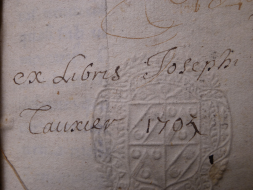 ex Libris Joseph
Tauxier 1705